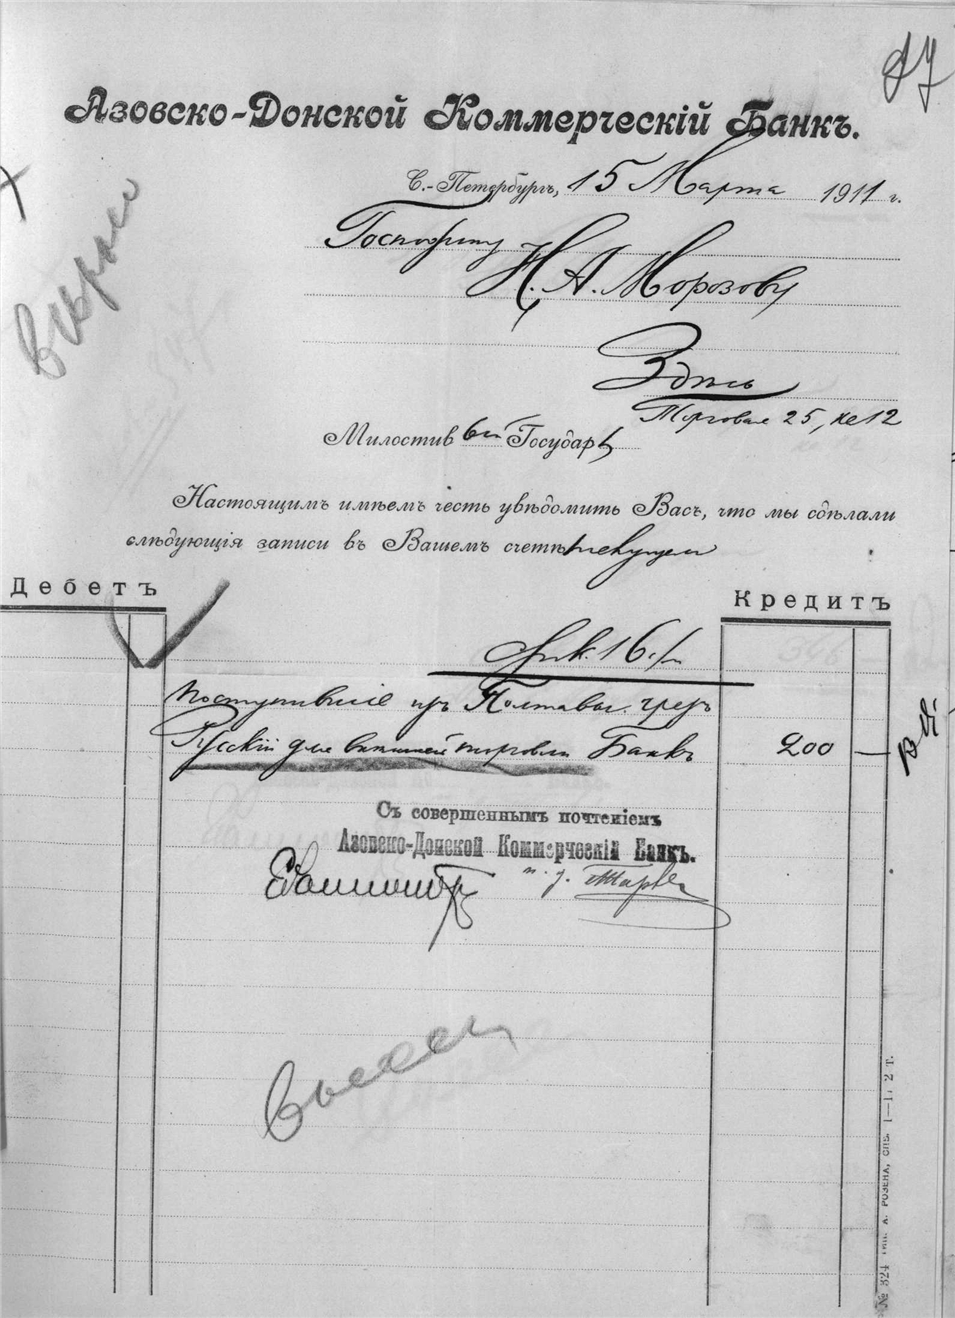 Азовско-Донской Коммерческій Банкъ.
С.-Петербургъ, 15 Марта 1911 г.
Господину
Н. А. Морозову
Здѣсь
Торговая 25, кв 12
Милостивый Государь
Настоящимъ имѣемъ честь увѣдомить Васъ, что мы сдѣлали
слѣдующія записи въ Вашемъ счетѣ текущем
Дебетъ
Кредитъ
16 с/м
Поступившіе изъ Полтавы черезъ
Русскій для внѣшней торговли Банкъ 200 —
Съ совершеннымъ почтеніемъ
Азовско-Донской Коммерческій Банкъ.
№ 324 Тип. А. РОЗЕНА, СПБ. 1—1, 2 т.